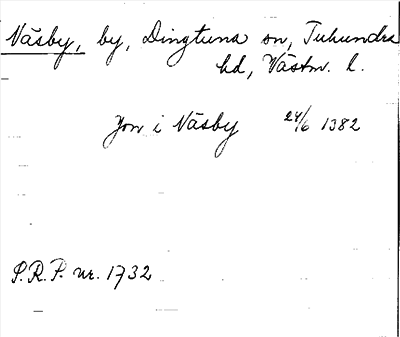 Näsby, by, Dingtuna sn, Tuhundra
hd, Västm. l.
Jon i Näsby 24/6 1382
P.R.P. nr. 1732